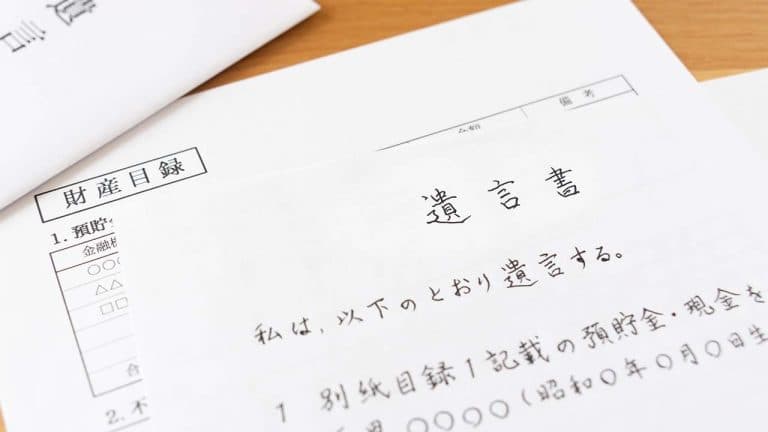 遺言
備考
財産目録
1. 預貯
金融
○○
△△
□□
2. 不
遺言書
私は、以下のとおり遺言する。
1 別紙目録1記載の預貯金・現金を
○○○○(昭和○年○月○日生